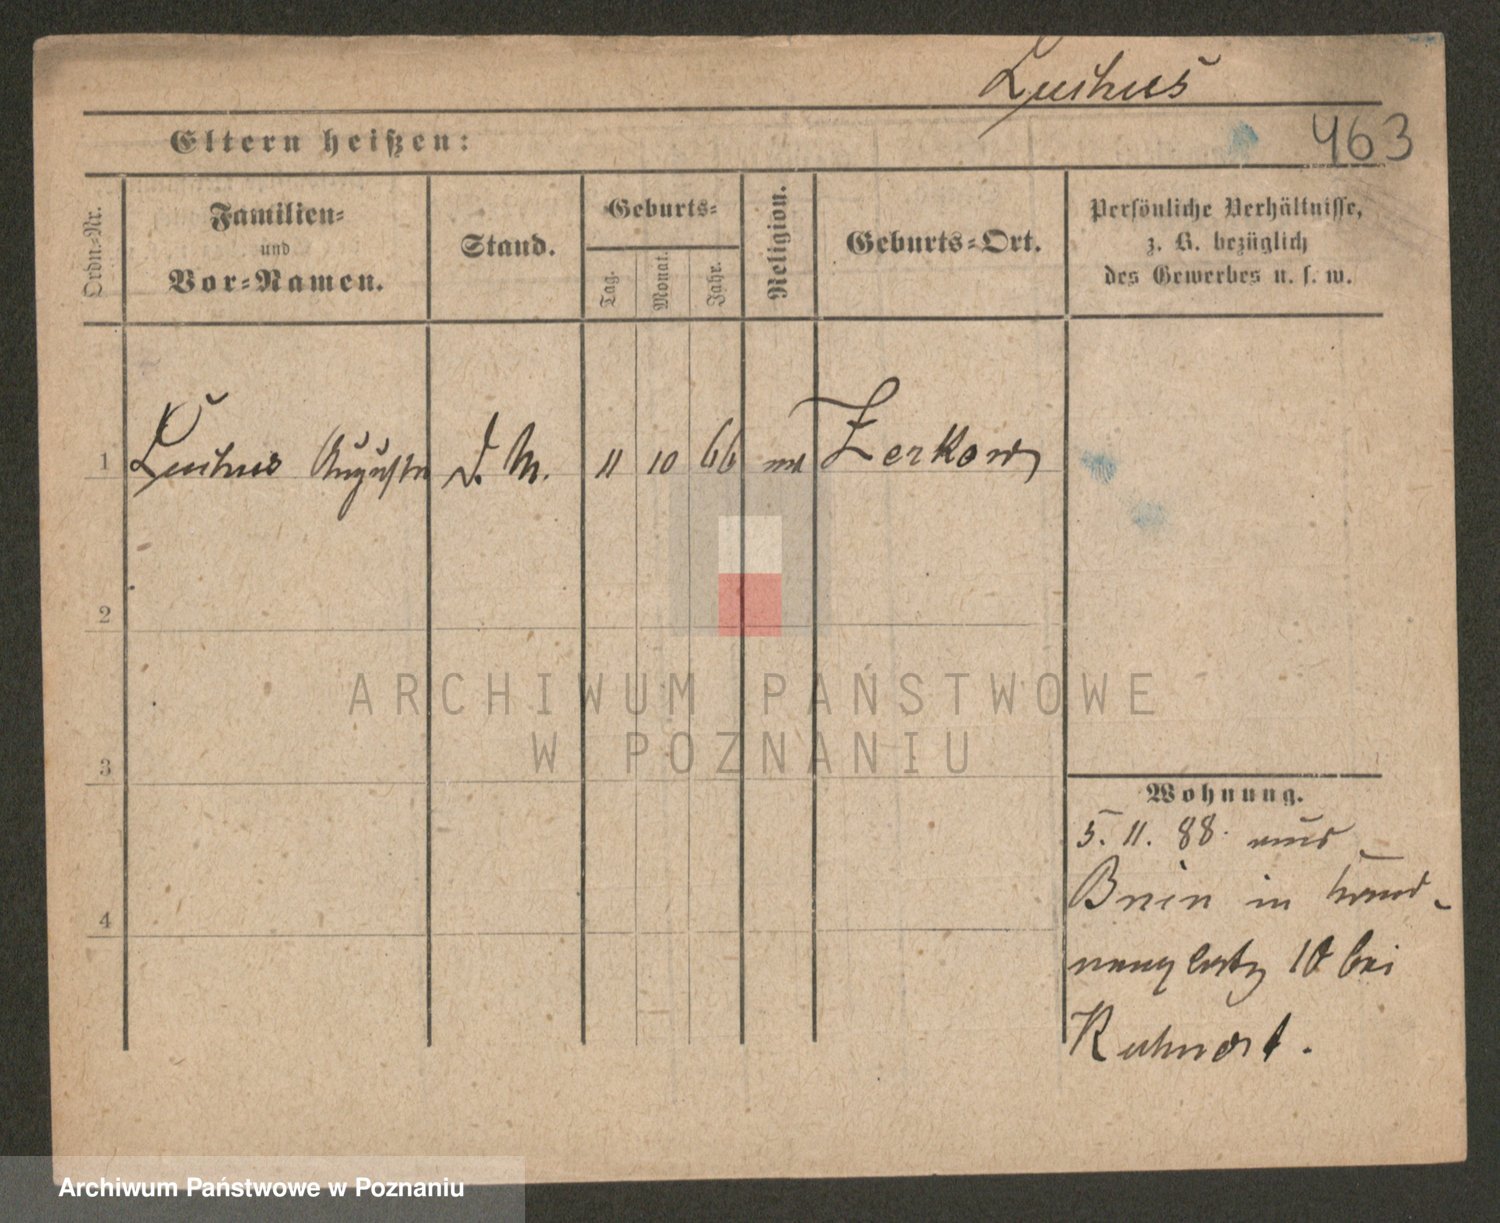 Luihus
463
Eltern heißen:
Ordn.-Nr.
Familien-
und
Vor-Namen.
Stand.
Geburts-
Tag.
Monat.
Jahr.
Religion.
Geburts-Ort.
Persönliche Verhältnisse,
z. B. bezüglich
des Gewerbes u. s. w.
1 Luihus Auguste D. M. 11 10 66 Zerkow
2
3
4
Wohnung.
5. 11. 88. aus
Bnin in
10 bei
Kuhnert.
ARCHIWUM PAŃSTWOWE
W POZNANIU
Archiwum Państwowe w Poznaniu